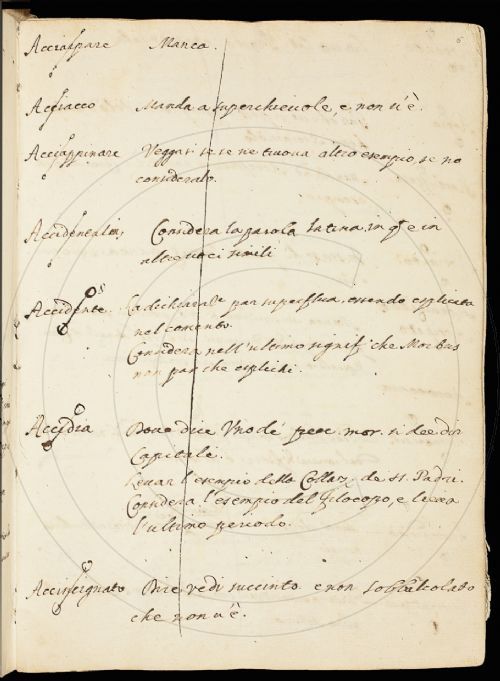 6
Acciarpare Manca.
Acciacco Manda a superchievole, e non v'è.
Acciappinare Veggasi se se ne truova altro esempio, se no
consideralo.
Considera la parola latina, in qto e in
altre voci simili
Accidente. La dichiarale par superflua, essendo esplicata
nel contento.
Considera nell'ultimo signif. che Morbus
non par che esplichi.
Accidia Dove dice Uno dé pecc. mor. si dee dir
Capitale.
Levar l'esempio delle Collaz. de SS. Padri.
Considera l'esempio del Filocopo, e leva
l'ultimo periodo.
Accinsignato Dice vedi succinto e non sobbalcolato
che non v'è.